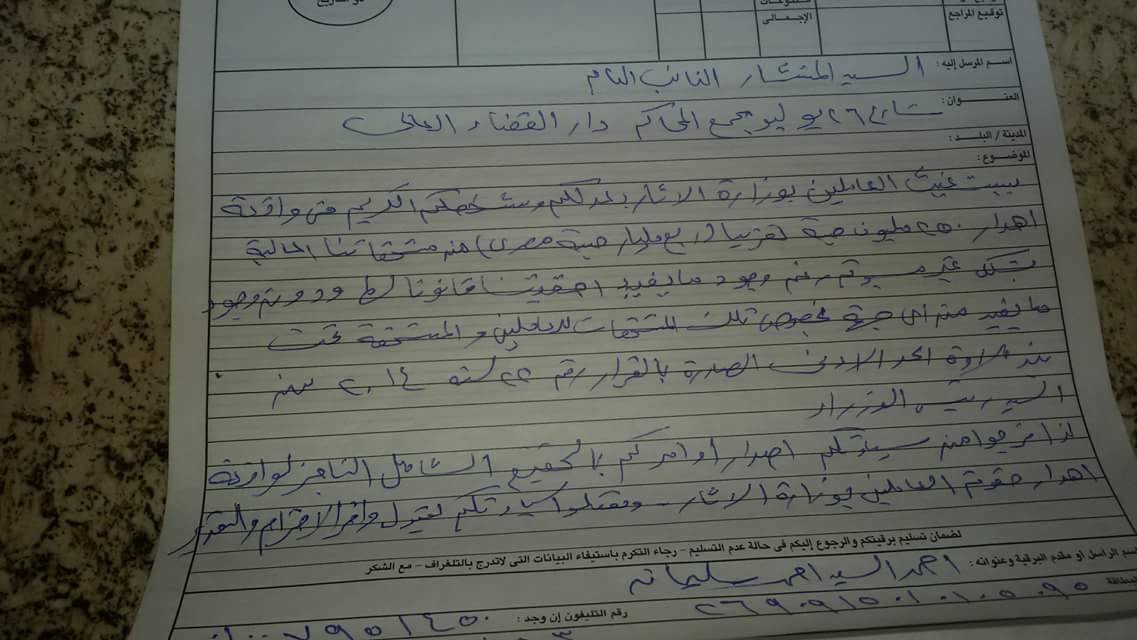 توقيع المراجع
الإجمـــالى
اسـم المرسل إليه : السيد المستشار النائب العام
العنــــوان : شارع ٢٦ يوليو مجمع المحاكم دار القضاء العالى
المدينة / البلـد :
الموضـــوع :
العاملين بوزارة الاثار بعدلكم وشخصكم الكريم فى واقعة
اهدار ٢٥٠ مليون جنية تقريبا (ربع مليار جنية مصرى) من مستحقاتنا المالية
بشكل غير رغم وجود ما يفيد احقيتنا قانونا لها ودون وجود
ما يفيد من اى جهة بخصوص تلك المستحقات للعاملين والمستحقة تحت
بند علاوة الحد الادنى الصدرة بالقرار رقم ٢٢ لسنة ٢٠١٤ من
السيد رئيس الوزراء
لذا نرجوا من سيادتكم اصدار أوامركم بالتحقيق الشامل الناجز لواقعة
اهدار حقوق العاملين بوزارة الاثار وتفضلوا سيادتكم بقبول وافر الاحترام والتقدير
لضمان تسليم برقيتكم والرجوع إليكم فى حالة عدم التسليم - رجاء التكرم باستيفاء البيانات التى لاتدرج بالتلغراف - مع الشكر
اسم الراسل او مقدم البرقية وعنوانه : احمد السيد احمد سليمان
رقم التليفون إن وجد :